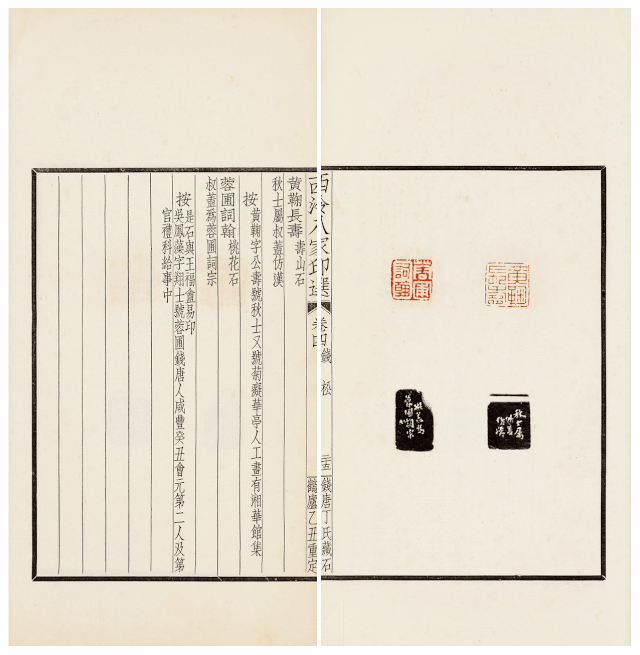 黃鞠長壽
秋士屬
叔蓋
仿漢
蓉圃詞翰
叔蓋爲
蓉圃詞宗
西泠八家印選
卷四 錢松 二五 錢唐丁氏藏石
鶴廬乙丑重定
黃鞠長壽 壽山石
秋士屬叔蓋仿漢
按 黃鞠字公壽號秋士又號菊癡華亭人工畫有湘華館集
蓉圃詞翰 桃花石
叔蓋爲蓉圃詞宗
按 是石與王福盦易印
吳鳳藻字翔士號蓉圃錢唐人咸豐癸丑會元第二人及第
官禮科給事中